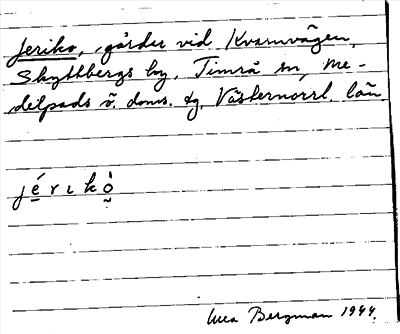 Jeriko, gårdar vid Kvarnvägen,
Skyttbergs by, Timrå sn, Me-
delpads ö. doms. tg, Västernorrl. län
jérıkò̤
Bergman 1944.